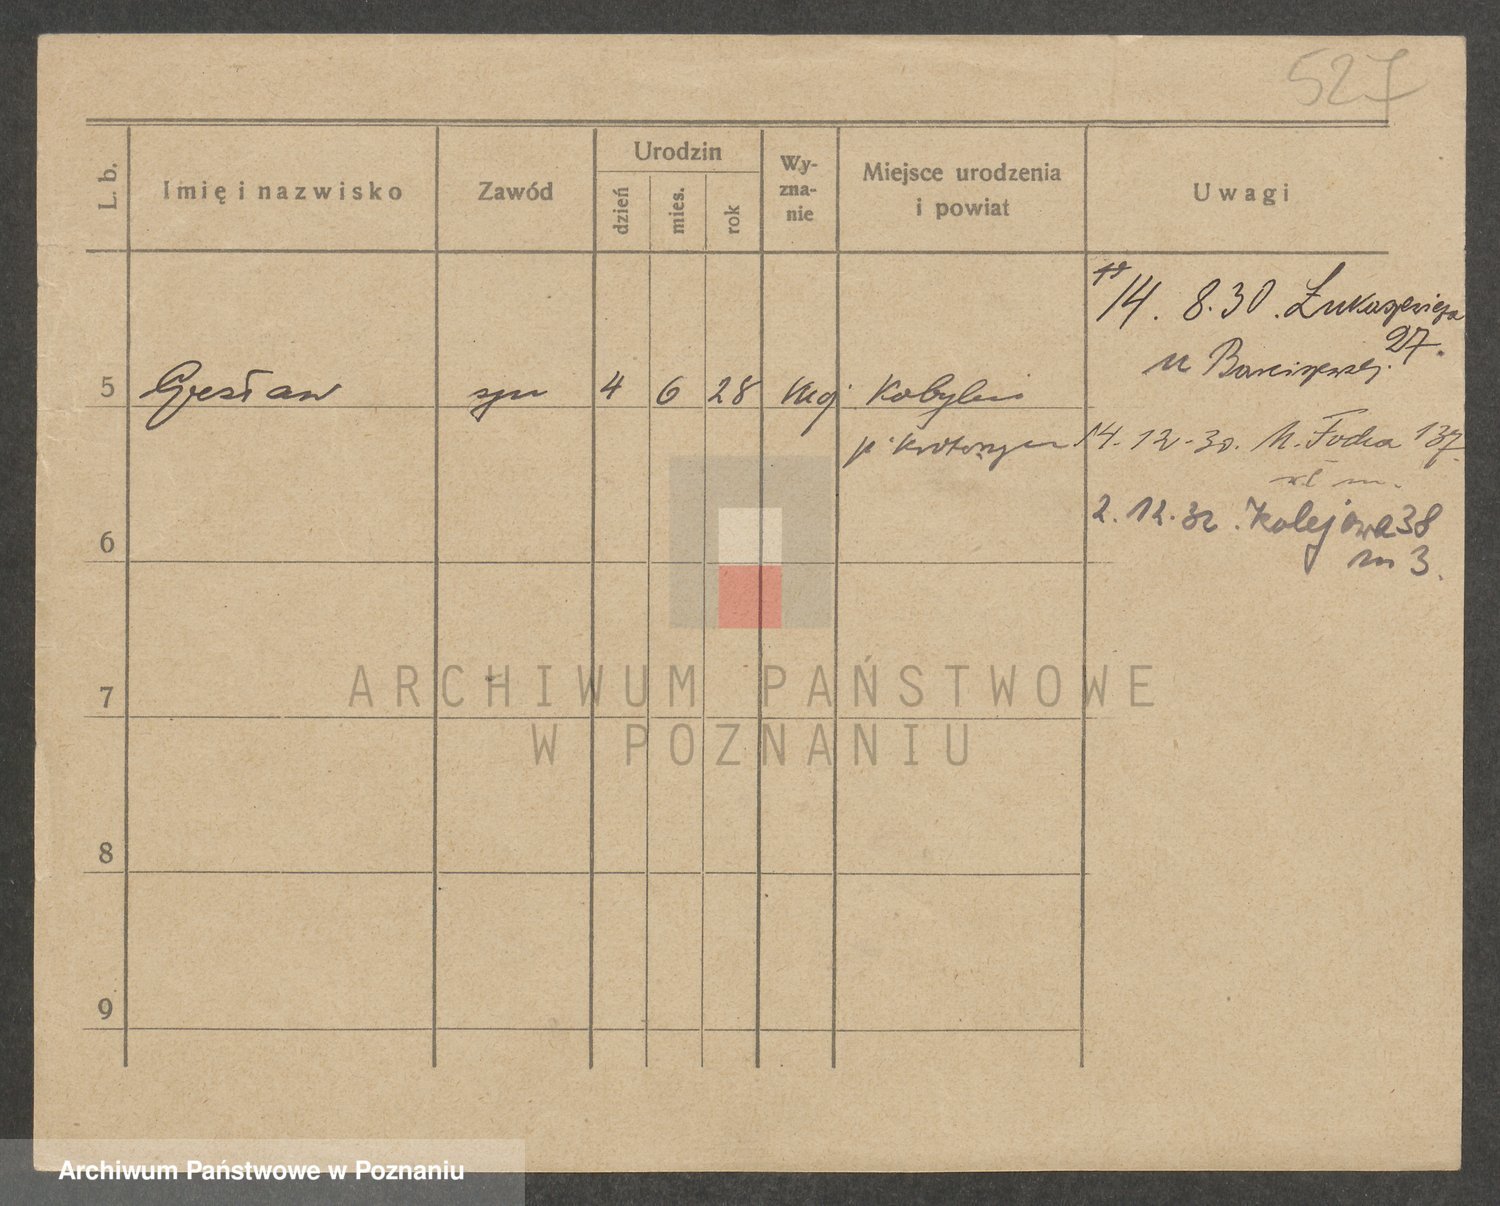 527
L. b.
Imię i nazwisko
Zawód
Urodzin
dzień
mies.
rok
Wy-
zna-
nie
Miejsce urodzenia
i powiat
Uwagi
14. 8.30. Łukaszewicza
27.
u Barciszewskiej.
5 Czesław syn 4 6 28 Kobylin
p. Krotoszyn
14. 12. 30. M. Focha 137.
wł m.
2. 12. 32. Kolejowa 38
m 3.
6
7
8
9
ARCHIWUM PAŃSTWOWE
W POZNANIU
Archiwum Państwowe w Poznaniu